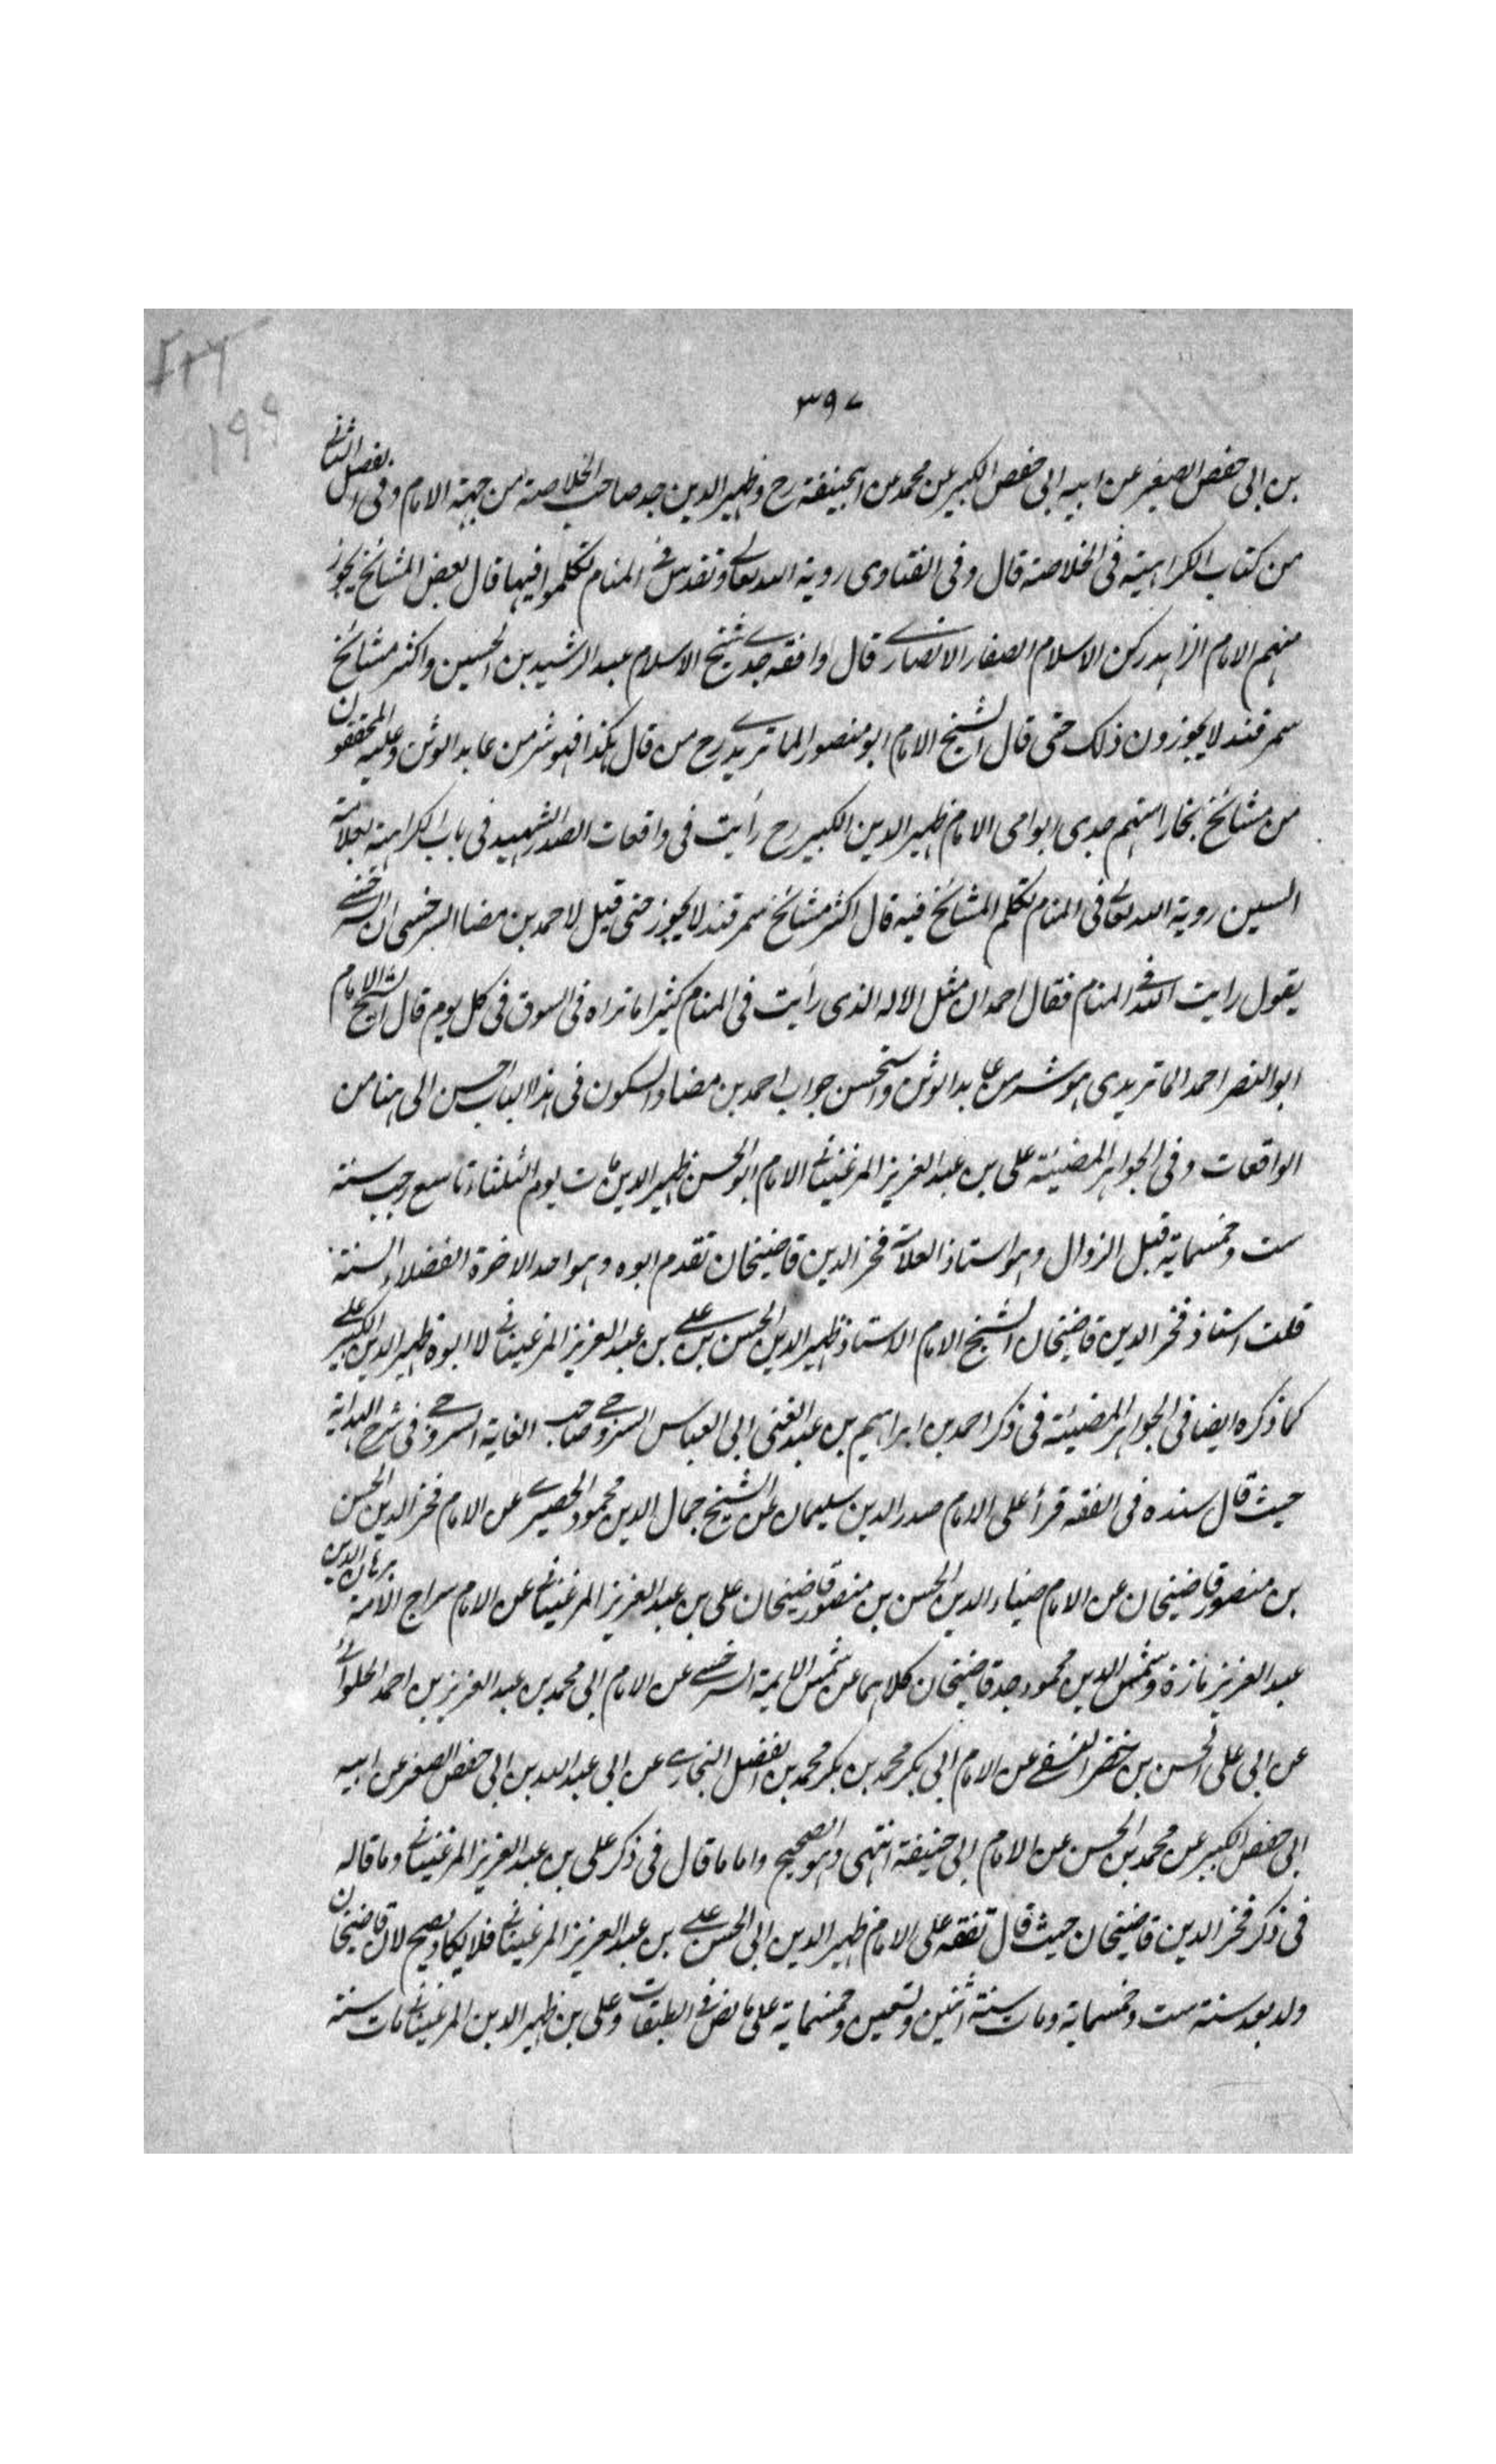 ٣٩٧
بن ابى حفص الصغير عن ابيه ابى حفص الكبير عن محمد عن ابيحنيفة رح وظهير الدين جد صاحب الخلاصة من جهة الام وفى الفصل الثانى
من كتاب الكراهية فى الخلاصة قال وفى الفتاوى روية الله تعالى وتقدس فى المنام تكلموا فيها قال بعض المشائخ يجوز
منهم الامام الزاهد ركن الاسلام الصفار الانصارى قال وافقه جدى شيخ الاسلام عبد الرشيد بن الحسين واكثر مشائخ
سمرقند لا يجوزون ذلك حتى قال الشيخ الامام ابو منصور الماتريدى رح من قال بهذا فهو شر من عابد الوثن وعليه المحققون
من مشائخ بخارا منهم جدى ابو امى الامام ظهير الدين الكبير رح رأيت فى واقعات الصدر الشهيد فى باب الكراهية بعلامة
السين روية الله تعالى فى المنام تكلم المشائخ فيه قال اكثر مشائخ سمرقند لا يجوز حتى قيل لاحمد بن مضا السرخسى ان السرخسى
يقول رايت الله فى المنام فقال احمد ان مثل الاله الذى رأيت فى المنام كثيرا ما تراه فى السوق فى كل يوم قال الشيخ الامام
ابو النصر احمد الماتريدى هو شر من عابد الوثن واستحسن جواب احمد بن مضا والسكون فى هذا الباب احسن الى هنا من
الواقعات وفى الجواهر المضيئة على بن عبد العزيز المرغينانى الامام ابو الحسن ظهير الدين مات يوم الثلثاء تاسع رجب سنة
ست وخمسماية قبل الزوال وهو استاذ العلامة فخر الدين قاضيخان تقدم ابوه وهو احد الاخوة الفضلاء الستة
قلت استاذ فخر الدين قاضيخان الشيخ الامام الاستاذ ظهير الدين الحسن بن على بن عبد العزيز المرغينانى لا ابوه ظهير الدين الكبير على
كما ذكره ايضا فى الجواهر المضيئة فى ذكر احمد بن ابراهيم بن عبد الغنى ابى العباس السروجى صاحب الغاية السروجى فى شرح الهداية
حيث قال سنده فى الفقه قرأ على الامام صدر الدين سليمان عن الشيخ جمال الدين محمود الحصيرى عن الامام فخر الدين الحسن
بن منصور قاضيخان عن الامام ضياء الدين الحسن بن منصور قاضيخان على بن عبد العزيز المرغينانى عن الامام سراج الامة برهان الدين
عبد العزيز مازة وشمس الدين محمود جد قاضيخان كلاهما عن شمس الايمة السرخسى عن الامام ابى محمد بن عبد العزيز بن احمد الحلوانى
عن ابى على الحسن بن خضر النسفى عن الامام ابى بكر محمد بن بكر محمد بن الفضل البخارى عن ابى عبد الله بن ابى حفص الصغير عن ابيه
ابى حفص الكبير عن محمد بن الحسن عن الامام ابى حنيفة انتهى وهو الصحيح واما ما قال فى ذكر على بن عبد العزيز المرغينانى وما قاله
فى ذكر فخر الدين قاضيخان حيث قال تفقه على الامام ظهير الدين ابى الحسن على بن عبد العزيز المرغينانى فلا يكاد يصح لان قاضيخان
ولد بعد سنة ست وخمسماية ومات سنة اثنين وتسعين وخمسماية على ما نص فى الطبقات وعلى بن ظهير الدين المرغينانى مات سنة